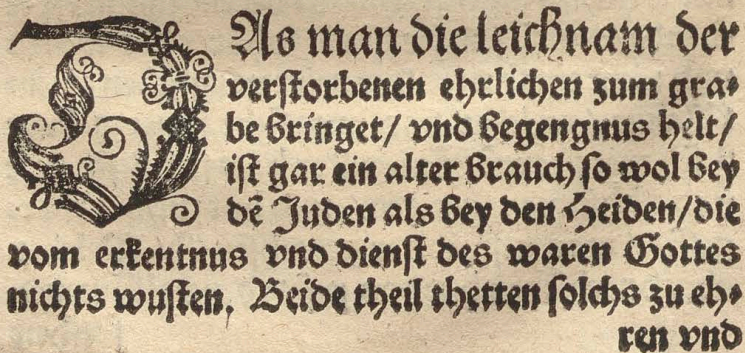 DAs man die leichnam der
verstorbenen ehrlichen zum gra⸗
be bringet/ vnd begengnus helt/
ist gar ein alter brauch so wol bey
dē Juden als bey den Heiden/die
vom erkentnus vnd dienst des waren Gottes
nichts wusten. Beide theil thetten solchs zu eh⸗
ren vnd